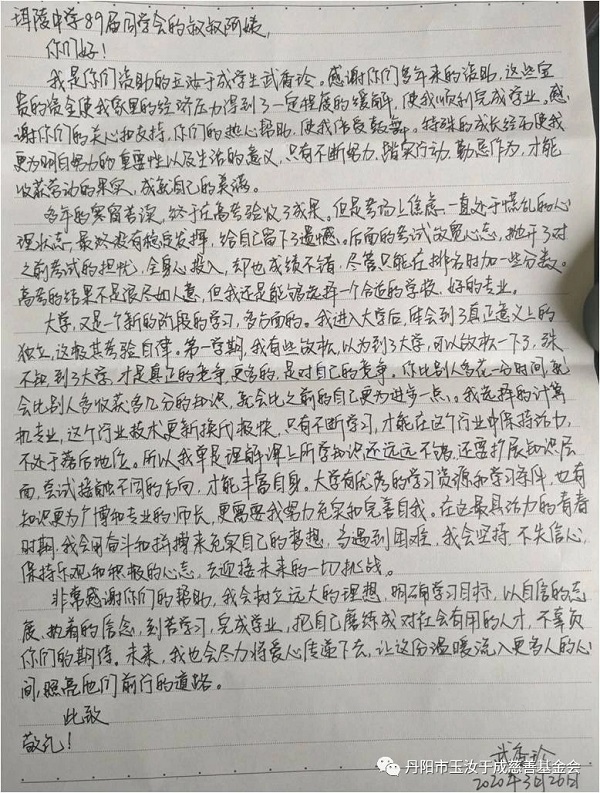 珥陵中学89届同学会的叔叔阿姨,
你们好!
我是你们资助的玉汝于成学生武香论。感谢你们多年来的资助,这些宝
贵的资金使我家里的经济压力得到了一定程度的缓解,使我顺利完成学业。感
谢你们的关心和支持,你们的热心帮助,使我倍受鼓舞。特殊的成长经历使我
更为明白努力的重要性以及生活的意义,只有不断努力,踏实行动,勤恳作为,才能
收获劳动的果实,成就自己的美满。
多年的寒窗苦读,终于在高考验收了成果。但是考场上焦虑,一直处于慌乱的心
理状态,最终没有稳定发挥,给自己留下了遗憾。后面的考试放宽心态,抛开了对
之前考试的担忧,全身心投入,却也成绩不错,尽管只能在排名时加一些分数。
高考的结果不是很尽如人意,但我还是能够选择一个合适的学校、好的专业。
大学,又是一个新的阶段的学习,多方面的。我进入大学后,体会到了真正意义上的
独立,这极其考验自律。第一学期,我有些放松,以为到了大学,可以放松一下了,殊
不知到了大学,才是真正的竞争,更多的,是对自己的竞争。你比别人多花一分时间,就
会比别人多收获多几分的知识,就会比之前的自己更为进步一点。我选择的计算
机专业,这个行业技术更新换代极快,只有不断学习,才能在这个行业中保持活力,
不处于落后地位。所以我单是理解课上所学知识还远远不够,还要扩展知识层
面,尝试接触不同的方向,才能丰富自身。大学有优秀的学习资源和学习条件,也有
知识更为广博和专业的师长,更需要我努力充实和完善自我。在这最具活力的青春
时期,我会用奋斗和拼搏来充实自己的梦想,当遇到困难,我会坚持,不失信心,
保持乐观和积极的心态,去迎接未来的一切挑战。
非常感谢你们的帮助,我会树立远大的理想,明确学习目标,以自信的态
度、执着的信念,刻苦学习,完成学业,把自己磨练成对社会有用的人才,不辜负
你们的期待。未来,我也会尽力将爱心传递下去,让这份温暖流入更多人的心
间,照亮他们前行的道路。
此致
敬礼!
武香论
2020年3月26日
丹阳市玉汝于成慈善基金会